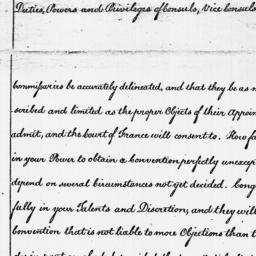 Duties, Powers and Privileges of Consuls, Vice Consuls
Commissaries be accurately delineated, and that they be as m
scribed and limited as the proper Objects of their Appoin
admit, and the Court of France will consent to. How fa
in your Power to obtain a Convention perfectly unexcep
depend on several Circumstances not yet decided. Cong
fully in your Talents and Discretion, and they will
Convention that is not liable to more Objections than t